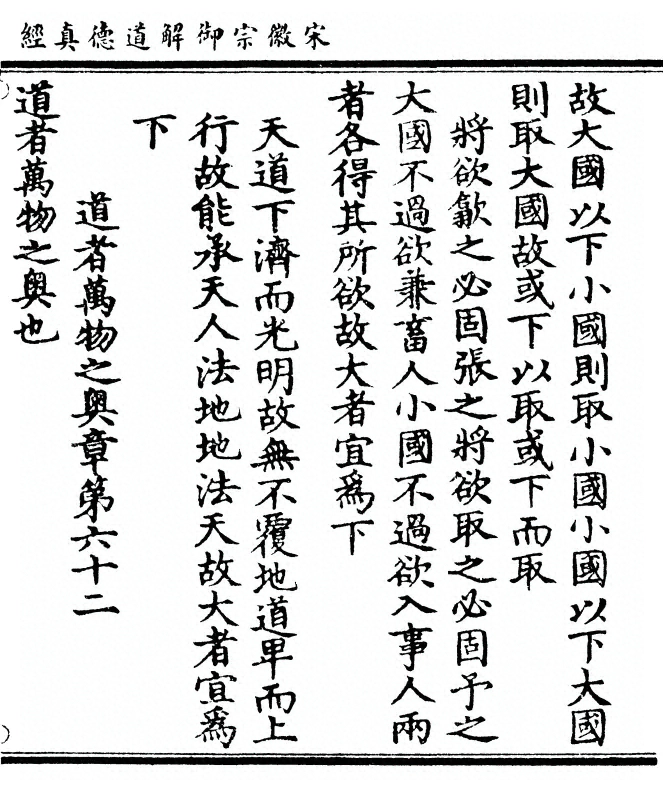 宋徽宗御解道德真經
故大國以下小國則取小國小國以下大國
則取大國故或下以取或下而取
將欲歙之必固張之將欲取之必固予之
大國不過欲兼畜人小國不過欲入事人兩
者各得其所欲故大者宜爲下
天道下濟而光明故無不覆地道卑而上
行故能承天人法地地法天故大者宜爲
下
道者萬物之奧章第六十二
道者萬物之奧也